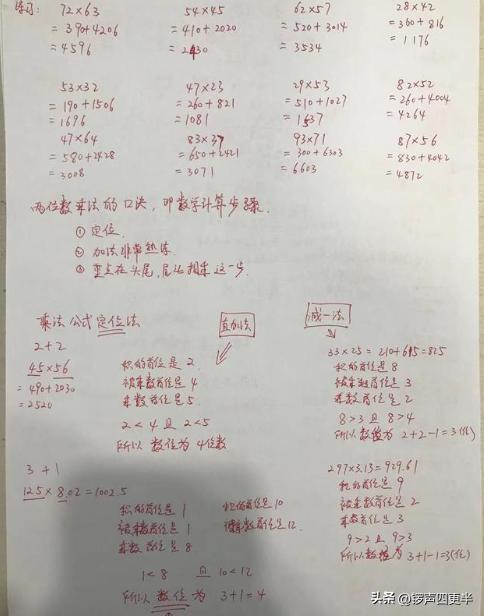 练习:
72×63 54×45 62×57 28×42
=390+4206 =410+2020 =520+3014 =360+816
=4596 =2430 =3534 =1176
53×32 47×23 29×53 82×52
=190+1506 =260+821 =510+1027 =260+4004
=1696 =1081 =1537 =4264
47×64 83×37 93×71 87×56
=580+2428 =650+2421 =300+6303 =830+4042
=3008 =3071 =6603 =4872
两位数乘法的口诀,即数学计算步骤.
① 定位.
② 加法非常熟练.
③ 重点在头尾,尾头相乘这一步.
乘法公式定位法 直加法 减一法
2+2
45×56
=490+2030
=2520
积的首位是2.
被乘数首位是4
乘数首位是5.
2<4 且 2<5
所以 数位为 4位数
33×25=210+615=825
积的首位是8
被乘数首位是3
乘数首位是2
8>3 且 8>4
所以数位为 2+2-1=3(位)
3+1
125×8.02=1002.5
积的首位是1 积的首位是10
被乘数首位是1 被乘数首位是12.
乘数首位是8
1<8 且 10<12
所以 数位为 3+1=4
297×3.13=929.61
积的首位是9
被乘数首位是2
乘数首位是3
9>2 且 9>3
所以数位为 3+1-1=3(位)
头条 @锣声四更半